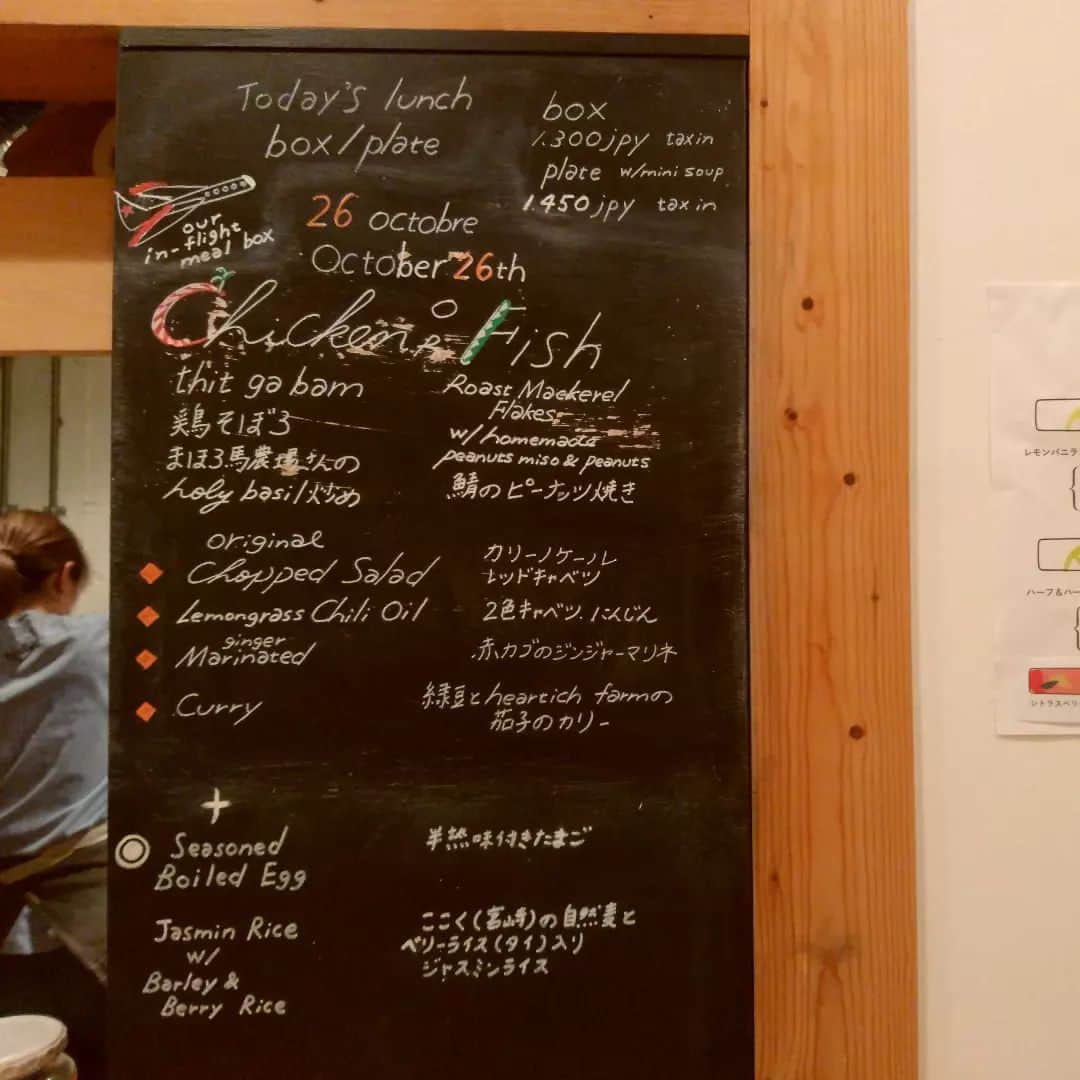 Today's lunch
box/plate
box
1.300jpy tax in
plate w/mini soup
1.450jpy tax in
our
in-flight
meal box
26 octobre
October 26th
Chicken oR Fish
thit ga bam
鶏そぼろ
まほろ馬農場さんの
holy basil炒め
Roast Mackerel
Flakes
w/homemade
peanuts miso & peanuts
鯖のピーナッツ焼き
original
Chopped Salad
カリーノケール
レッドキャベツ
Lemongrass Chili Oil
2色キャベツ.にんじん
ginger
Marinated
赤カブのジンジャーマリネ
Curry
緑豆とheartich farmの
茄子のカリー
+
Seasoned
Boiled Egg
半熟味付きたまご
Jasmin Rice
w/
Barley &
Berry Rice
ここく(宮崎)の自然麦と
ベリーライス(タイ)入り
ジャスミンライス
レモンバニラ
ハーフ&ハー
シトラスベリ